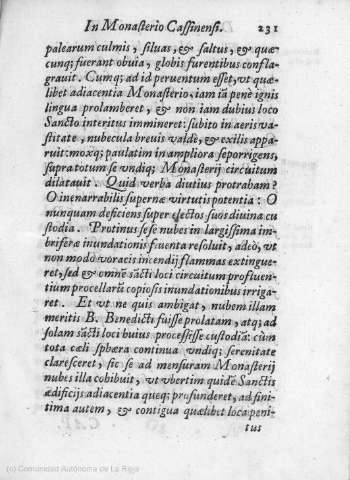 In Monasterio Cassinensi. 231
palearum culmis, siluas, & saltus, & quæ
cunq; fuerant obuia, globis furentibus confla-
grauit. Cumq; ad id peruentum esset, vt quæ-
libet adiacentia Monasterio, iam iã penè ignis
lingua prolamberet, & non iam dubius loco
Sancto interitus immineret: subito in aeris va-
stitate, nubecula breuis valde, & exilis appa-
ruit: moxq; paulatim in ampliora se porrigens,
supra totum se vndiq; Monasterij circuitum
dilatauit. Quid verba diutius protraham?
O inenarrabilis supernæ virtutis potentia: O
nunquam deficiens super electos suos diuina cu
stodia. Protinus sese nubes in largissima im-
briferæ inundationis fluenta resoluit, adeò, vt
non modo voracis incendij flammas extingue-
ret, sed & omnẽ sãcti loci circuitum profluen-
tium procellarũ copiosis inundationibus irriga-
ret. Et vt ne quis ambigat, nubem illam
meritis B. Benedicti fuisse prolatam, atq; ad
solam sãcti loci huius processisse custodiã: cùm
tota cœli sphæra continua vndiq; serenitate
claresceret, sic se ad mensuram Monasterij
nubes illa cohibuit, vt vbertim quidẽ Sanctis
ædificijs adiacentia queq; profunderet, ad fini-
tima autem, & contigua quælibet loca peni-
tus
(c) Comunidad Autónoma de La Rioja